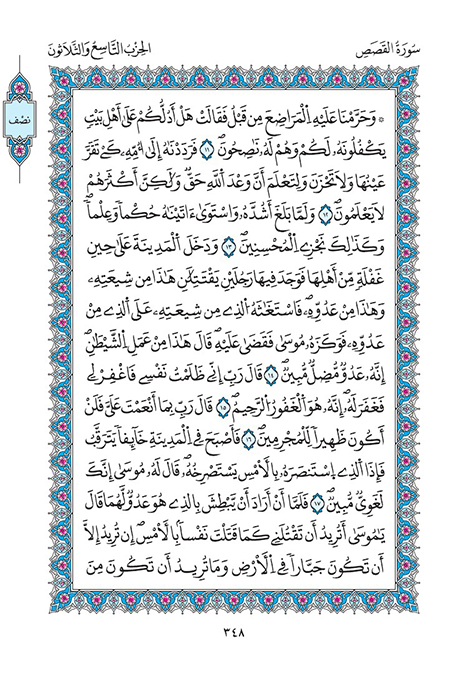 سُورَةُ القَصَصِ
الحِزْبُ التَّاسِعُ وَالثَّلَاثُونَ
نصف
۞ وَحَرَّمْنَا عَلَيْهِ اِ۬لْمَرَاضِعَ مِن قَبْلُ فَقَالَتْ هَلَ اَدُلُّكُمْ عَلَىٰٓ أَهْلِ بَيْتٖ
يَكْفُلُونَهُۥ لَكُمْ وَهُمْ لَهُۥ نَٰصِحُونَۖ ١١ فَرَدَدْنَٰهُ إِلَىٰٓ أُمِّهِۦ كَےْ تَقَرَّ
عَيْنُهَا وَلَا تَحْزَنَ وَلِتَعْلَمَ أَنَّ وَعْدَ اَ۬للَّهِ حَقّٞۖ وَلَٰكِنَّ أَكْثَرَهُمْ
لَا يَعْلَمُونَۖ ١٢ وَلَمَّا بَلَغَ أَشُدَّهُۥ وَاسْتَوَىٰٓ ءَاتَيْنَٰهُ حُكْماٗ وَعِلْماٗۖ
وَكَذَٰلِكَ نَجْزِے اِ۬لْمُحْسِنِينَۖ ١٣ وَدَخَلَ اَ۬لْمَدِينَةَ عَلَىٰ حِينِ
غَفْلَةٖ مِّنَ اَهْلِهَا فَوَجَدَ فِيهَا رَجُلَيْنِ يَقْتَتِلَٰنِ هَٰذَا مِن شِيعَتِهِۦ
وَهَٰذَا مِنْ عَدُوِّهِۦۖ فَاسْتَغَٰثَهُ اُ۬لذِے مِن شِيعَتِهِۦ عَلَى اَ۬لذِے مِنْ
عَدُوِّهِۦ فَوَكَزَهُۥ مُوسَىٰ فَقَضَىٰ عَلَيْهِۖ قَالَ هَٰذَا مِنْ عَمَلِ اِ۬لشَّيْطَٰنِۖ
إِنَّهُۥ عَدُوّٞ مُّضِلّٞ مُّبِينٞۖ ١٤ قَالَ رَبِّ إِنِّے ظَلَمْتُ نَفْسِے فَاغْفِرْ لِے
فَغَفَرَ لَهُۥٓۖ إِنَّهُۥ هُوَ اَ۬لْغَفُورُ اُ۬لرَّحِيمُۖ ١٥ قَالَ رَبِّ بِمَآ أَنْعَمْتَ عَلَيَّ فَلَنَ
اَكُونَ ظَهِيراٗ لِّلْمُجْرِمِينَۖ ١٦ فَأَصْبَحَ فِے اِ۬لْمَدِينَةِ خَآئِفاٗ يَتَرَقَّبُ
فَإِذَا اَ۬لذِے اِ۪سْتَنصَرَهُۥ بِالَامْسِ يَسْتَصْرِخُهُۥۖ قَالَ لَهُۥ مُوسَىٰٓ إِنَّكَ
لَغَوِيّٞ مُّبِينٞۖ ١٧ فَلَمَّآ أَنَ اَرَادَ أَنْ يَّبْطِشَ بِالذِے هُوَ عَدُوّٞ لَّهُمَا قَالَ
يَٰمُوسَىٰٓ أَتُرِيدُ أَن تَقْتُلَنِے كَمَا قَتَلْتَ نَفْساَۢ بِالَامْسِۖ إِن تُرِيدُ إِلَّآ
أَن تَكُونَ جَبَّاراٗ فِے اِ۬لَارْضِ وَمَا تُرِيدُ أَن تَكُونَ مِنَ
٣٤٨